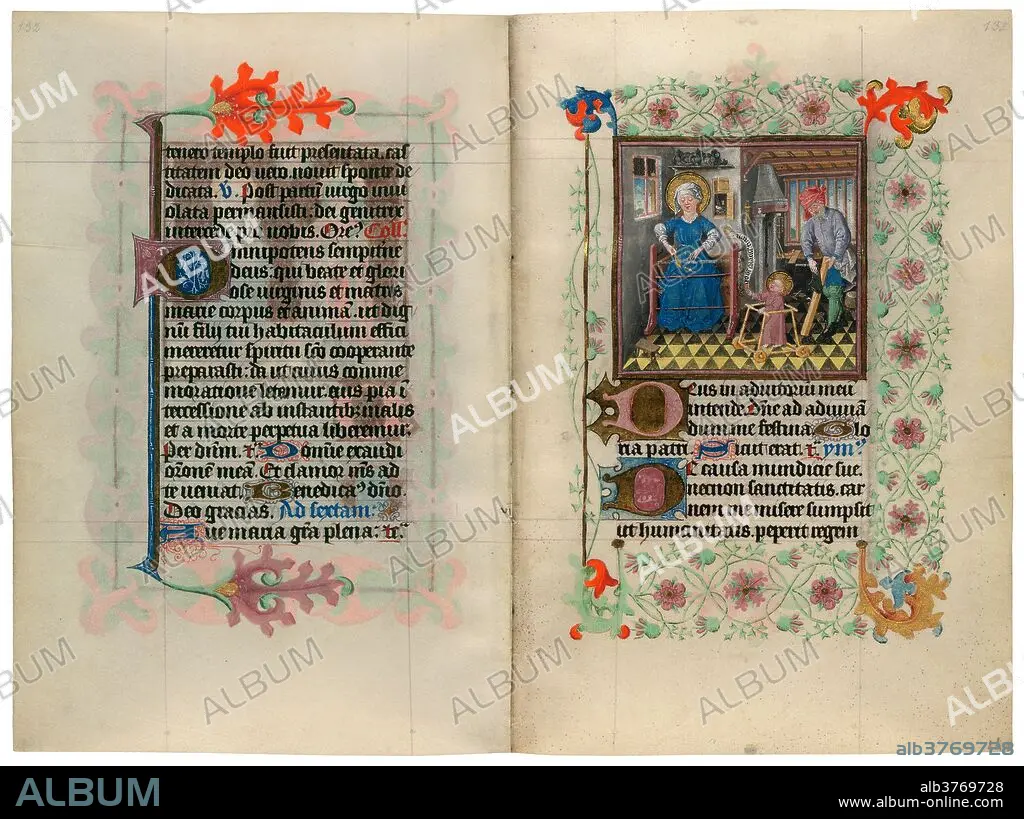 132
tenero templo fuit presentata. cas
titatem deo vero. novit sponte de
dicata. V. Post partū virgo invi
olata permansisti: dei genitrix
intercede pro nobis. Ore? Coll.
Omnipotens sempiterne
deus: qui beate et glori
ose virginis et matris
marie corpus et animam. ut dig
nū filij tui habitaculum effici
mereretur spiritu sc̄o cooperante
preparasti: da ut cuius comme
moratione letemur. eius pia ī
tercessione ab instantibꝫ malis
et a morte perpetua liberemur.
Per dnm. Domine exaudi
orōnem meā. Et clamor m̄s ad
te veniat. Benedicaꝰ dn̄o.
Deo gracias. Ad sextam:
Aue maria gr̄a plena:
132
Deus in adiutorium meū
intende. Dn̄e ad adiuuā
dum me festina. Glo
ria patri. Sicut erat. ym?
De causa mundicie sue.
necnon sanctitatis. car
nem me misere sumpsit
ut humanitatis. peperit regem
ALBUM
alb3769728
ALBUM
alb3769728
www.album-online.com